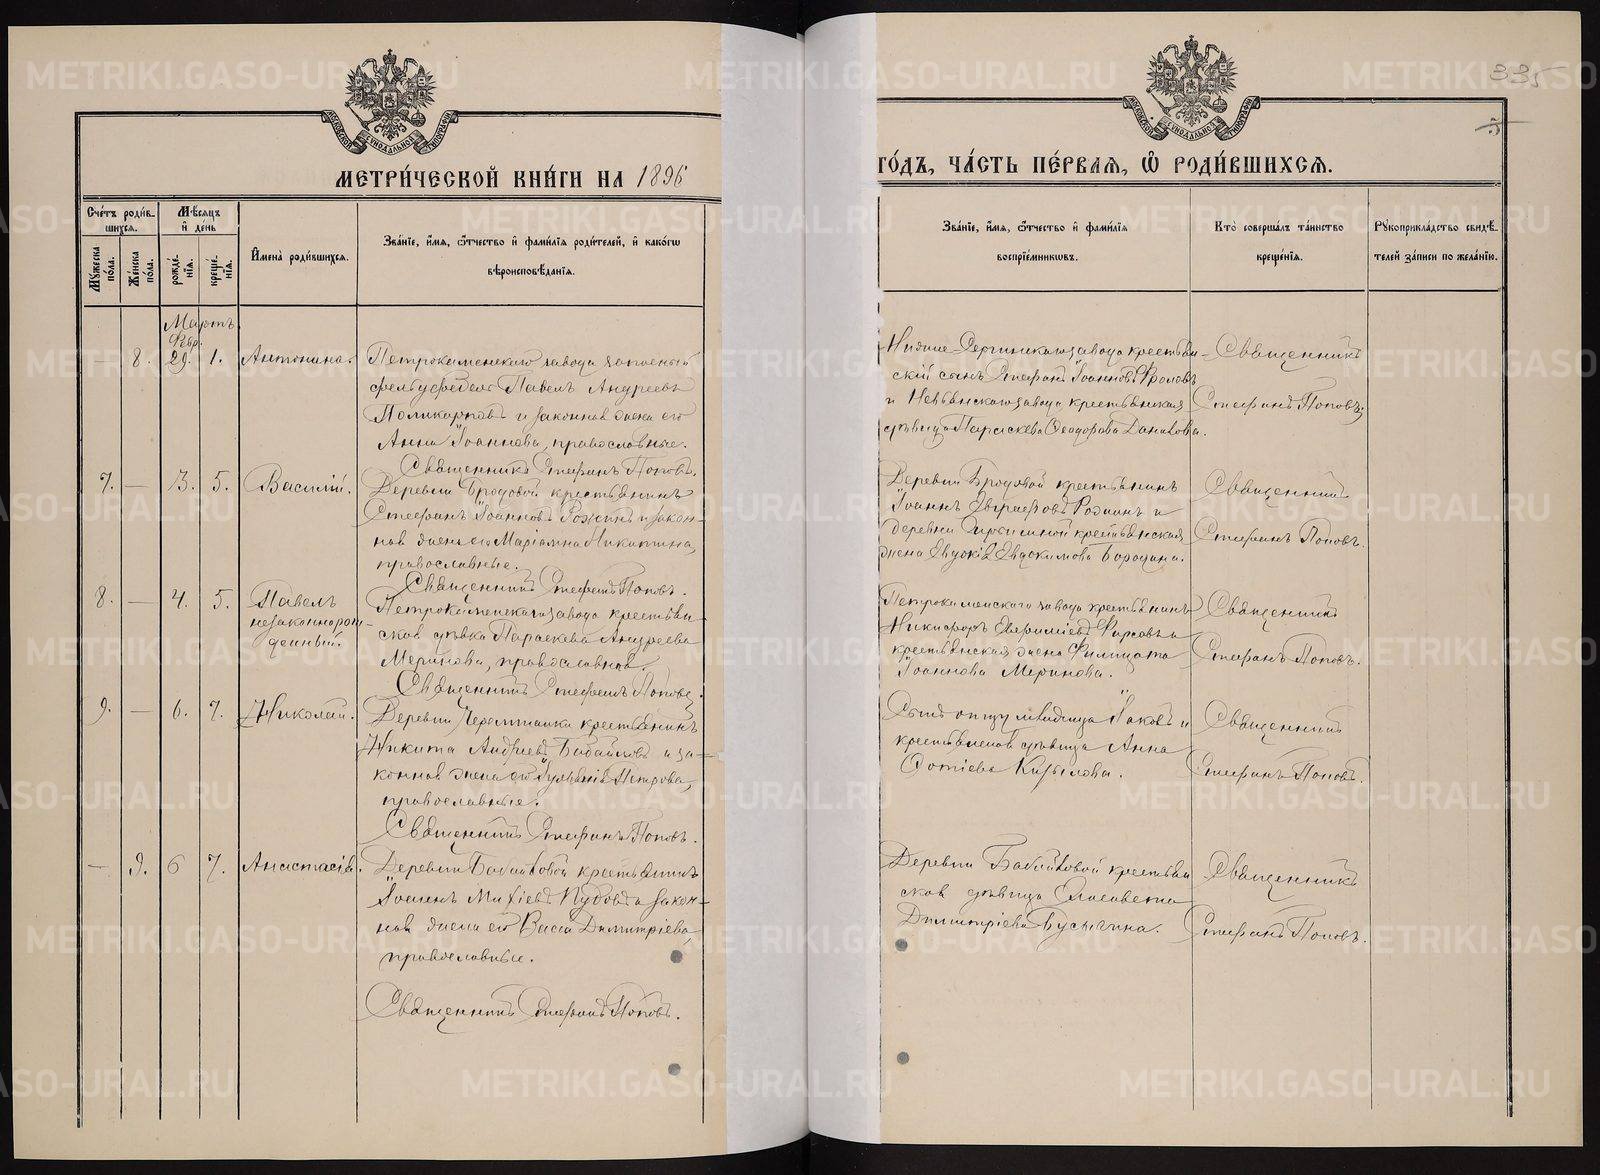 METRIKI.GASO-URAL.RU
335
5
МОСКОВСКОЙ СѴНОДАЛЬНОЙ ТИПОГРАФІИ
МЕТРИ́ЧЕСКОЙ КНИ́ГИ НА 1896
ГО́ДЪ, ЧА́СТЬ ПЕ́РВАЯ, Ѡ҆ РОДИ́ВШИХСЯ.
Сче́тъ роди́в-
шихся.
Мꙋ́жеска пола.
Же́нска пола.
Мѣ́сяцъ
и҆ де́нь
рожде́-
нїя.
креще́-
нїя.
И҆мена̀ роди́вшихся.
Зва́нїе, и҆́мя, ѻ҆́тчество и҆ фами́лїя роди́телей, и҆ како́гѡ
вѣроисповѣ́данїя.
Зва́нїе, и҆́мя, ѻ҆́тчество и҆ фами́лїя
воспрїе́мникѡвъ.
Кто̀ соверша́лъ та́инство
креще́нїя.
Рꙋкоприкла́дство свидѣ́-
телей за́писи по жела́нїю.
Мартъ
Февр.
— 8. 29. 1. Антонина.
Петрокаменскаго завода запасный
фельдфебель Павелъ Андреевъ
Поликарповъ и законная жена его
Анна Іоаннова, православные.
Священникъ Стефанъ Поповъ.
Нижне-Сергинскаго завода крестьян-
скій сынъ Стефанъ Іоанновъ Фроловъ
и Невьянскаго завода крестьянская
дѣвица Параскева Ѳеодорова Данилова.
Священникъ
Стефанъ Поповъ.
7. — 3. 5. Василій.
Деревни Бродовой крестьянинъ
Стефанъ Іоанновъ Рожинъ и закон-
ная жена его Маріамна Никитина,
православные.
Священникъ Стефанъ Поповъ.
Деревни Бродовой крестьянинъ
Іоаннъ Евграфовъ Рожинъ и
деревни крестьянская
жена Евдокія Евдокимова Бородина.
Священникъ
Стефанъ Поповъ.
8. — 4. 5. Павелъ
незаконнорож-
денный.
Петрокаменскаго завода крестьян-
ская дѣвка Параскева Андреева
Меринова, православная.
Священникъ Стефанъ Поповъ.
Петрокаменскаго завода крестьянинъ
Никифоръ Евфиміевъ Фирсовъ и
крестьянская жена Филицата
Іоаннова Меринова.
Священникъ
Стефанъ Поповъ.
9. — 6. 7. Николай.
Деревни Черемшанки крестьянинъ
Никита Андреевъ Бабайловъ и за-
конная жена его Іуліанія Петрова,
православные.
Священникъ Стефанъ Поповъ.
Сынъ Іаковъ и
крестьянская дѣвица Анна
Фотіева Кирилова.
Священникъ
Стефанъ Поповъ.
— 9. 6 7. Анастасія.
Деревни Бабайковой крестьянинъ
Іоаннъ Пудовъ и закон-
ная жена его Васса Димитріева,
православные.
Священникъ Стефанъ Поповъ.
Деревни Бабайковой крестьян
ская дѣвица Елисавета
Димитріева Бусыгина.
Священникъ
Стефанъ Поповъ.